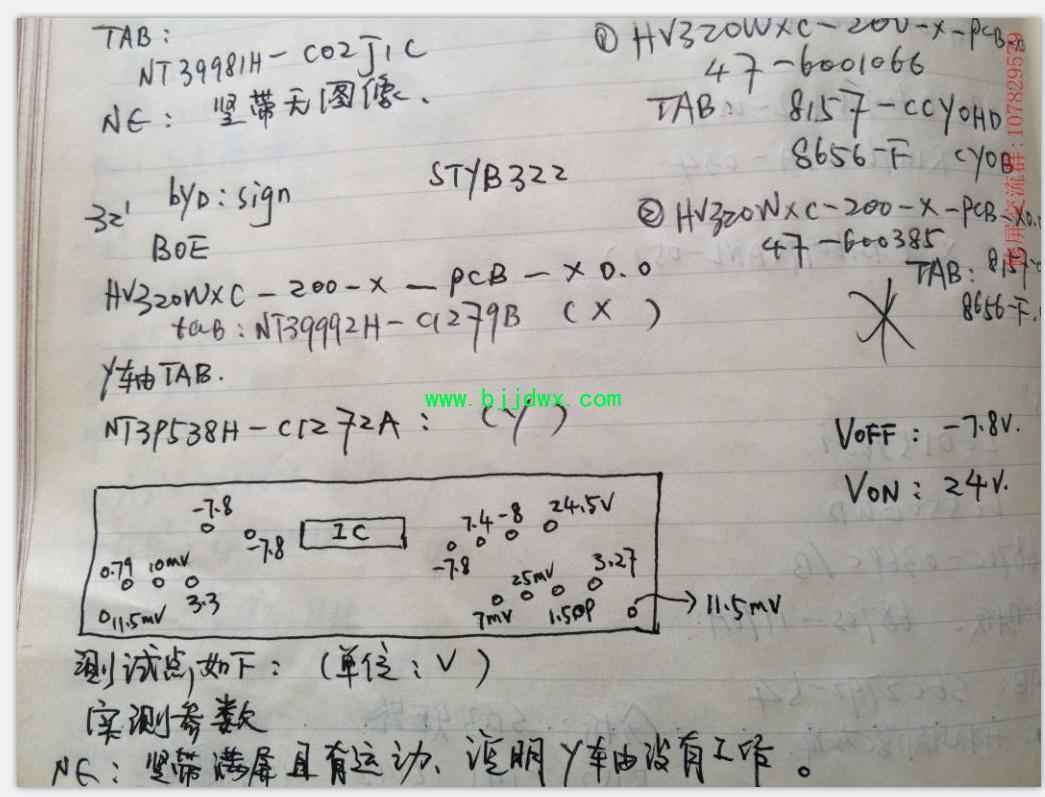 TAB:
NT39981H-C02J1C
NE: 竖带无图像.
① HV320WXC-200-X-PCB
47-6001066
TAB: 8157-CCY0HD
8656-F CY0B
STYB322
byD: sign
32'
BOE
HV320WXC-200-X-PCB-X0.0
tab: NT39992H-C1279B (X)
② HV320WXC-200-X-PCB-X0.
47-600385
TAB: 8157
8656-F.
Y轴TAB.
www.bjjdwx.com
NT39538H-C1272A: (Y)
VOFF: -7.8V.
VON: 24V.
-7.8
-7.8
IC
7.4 -8 24.5V
-7.8
0.79 10mV
3.3
11.5mV
25mV 3.27
7mV
11.5mV
测试点,如下: (单位: V)
实测参数
NE: 竖带满屏且有运动、说明Y轴没有工作。
交流群:107829529